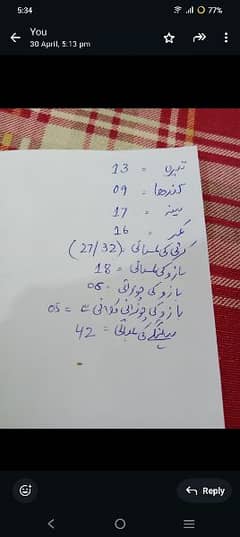 5:34
77%
You
30 April, 5:13 pm
تیرہ = 13
کندھا = 09
سینہ = 17
گھیر = 16
کرتی کی لمبائی (27/32)
بازو کی لمبائی = 18
بازو کی چوڑائی = 06
بازو کی چوڑائی = 05
کی لمبائی = 42
Reply